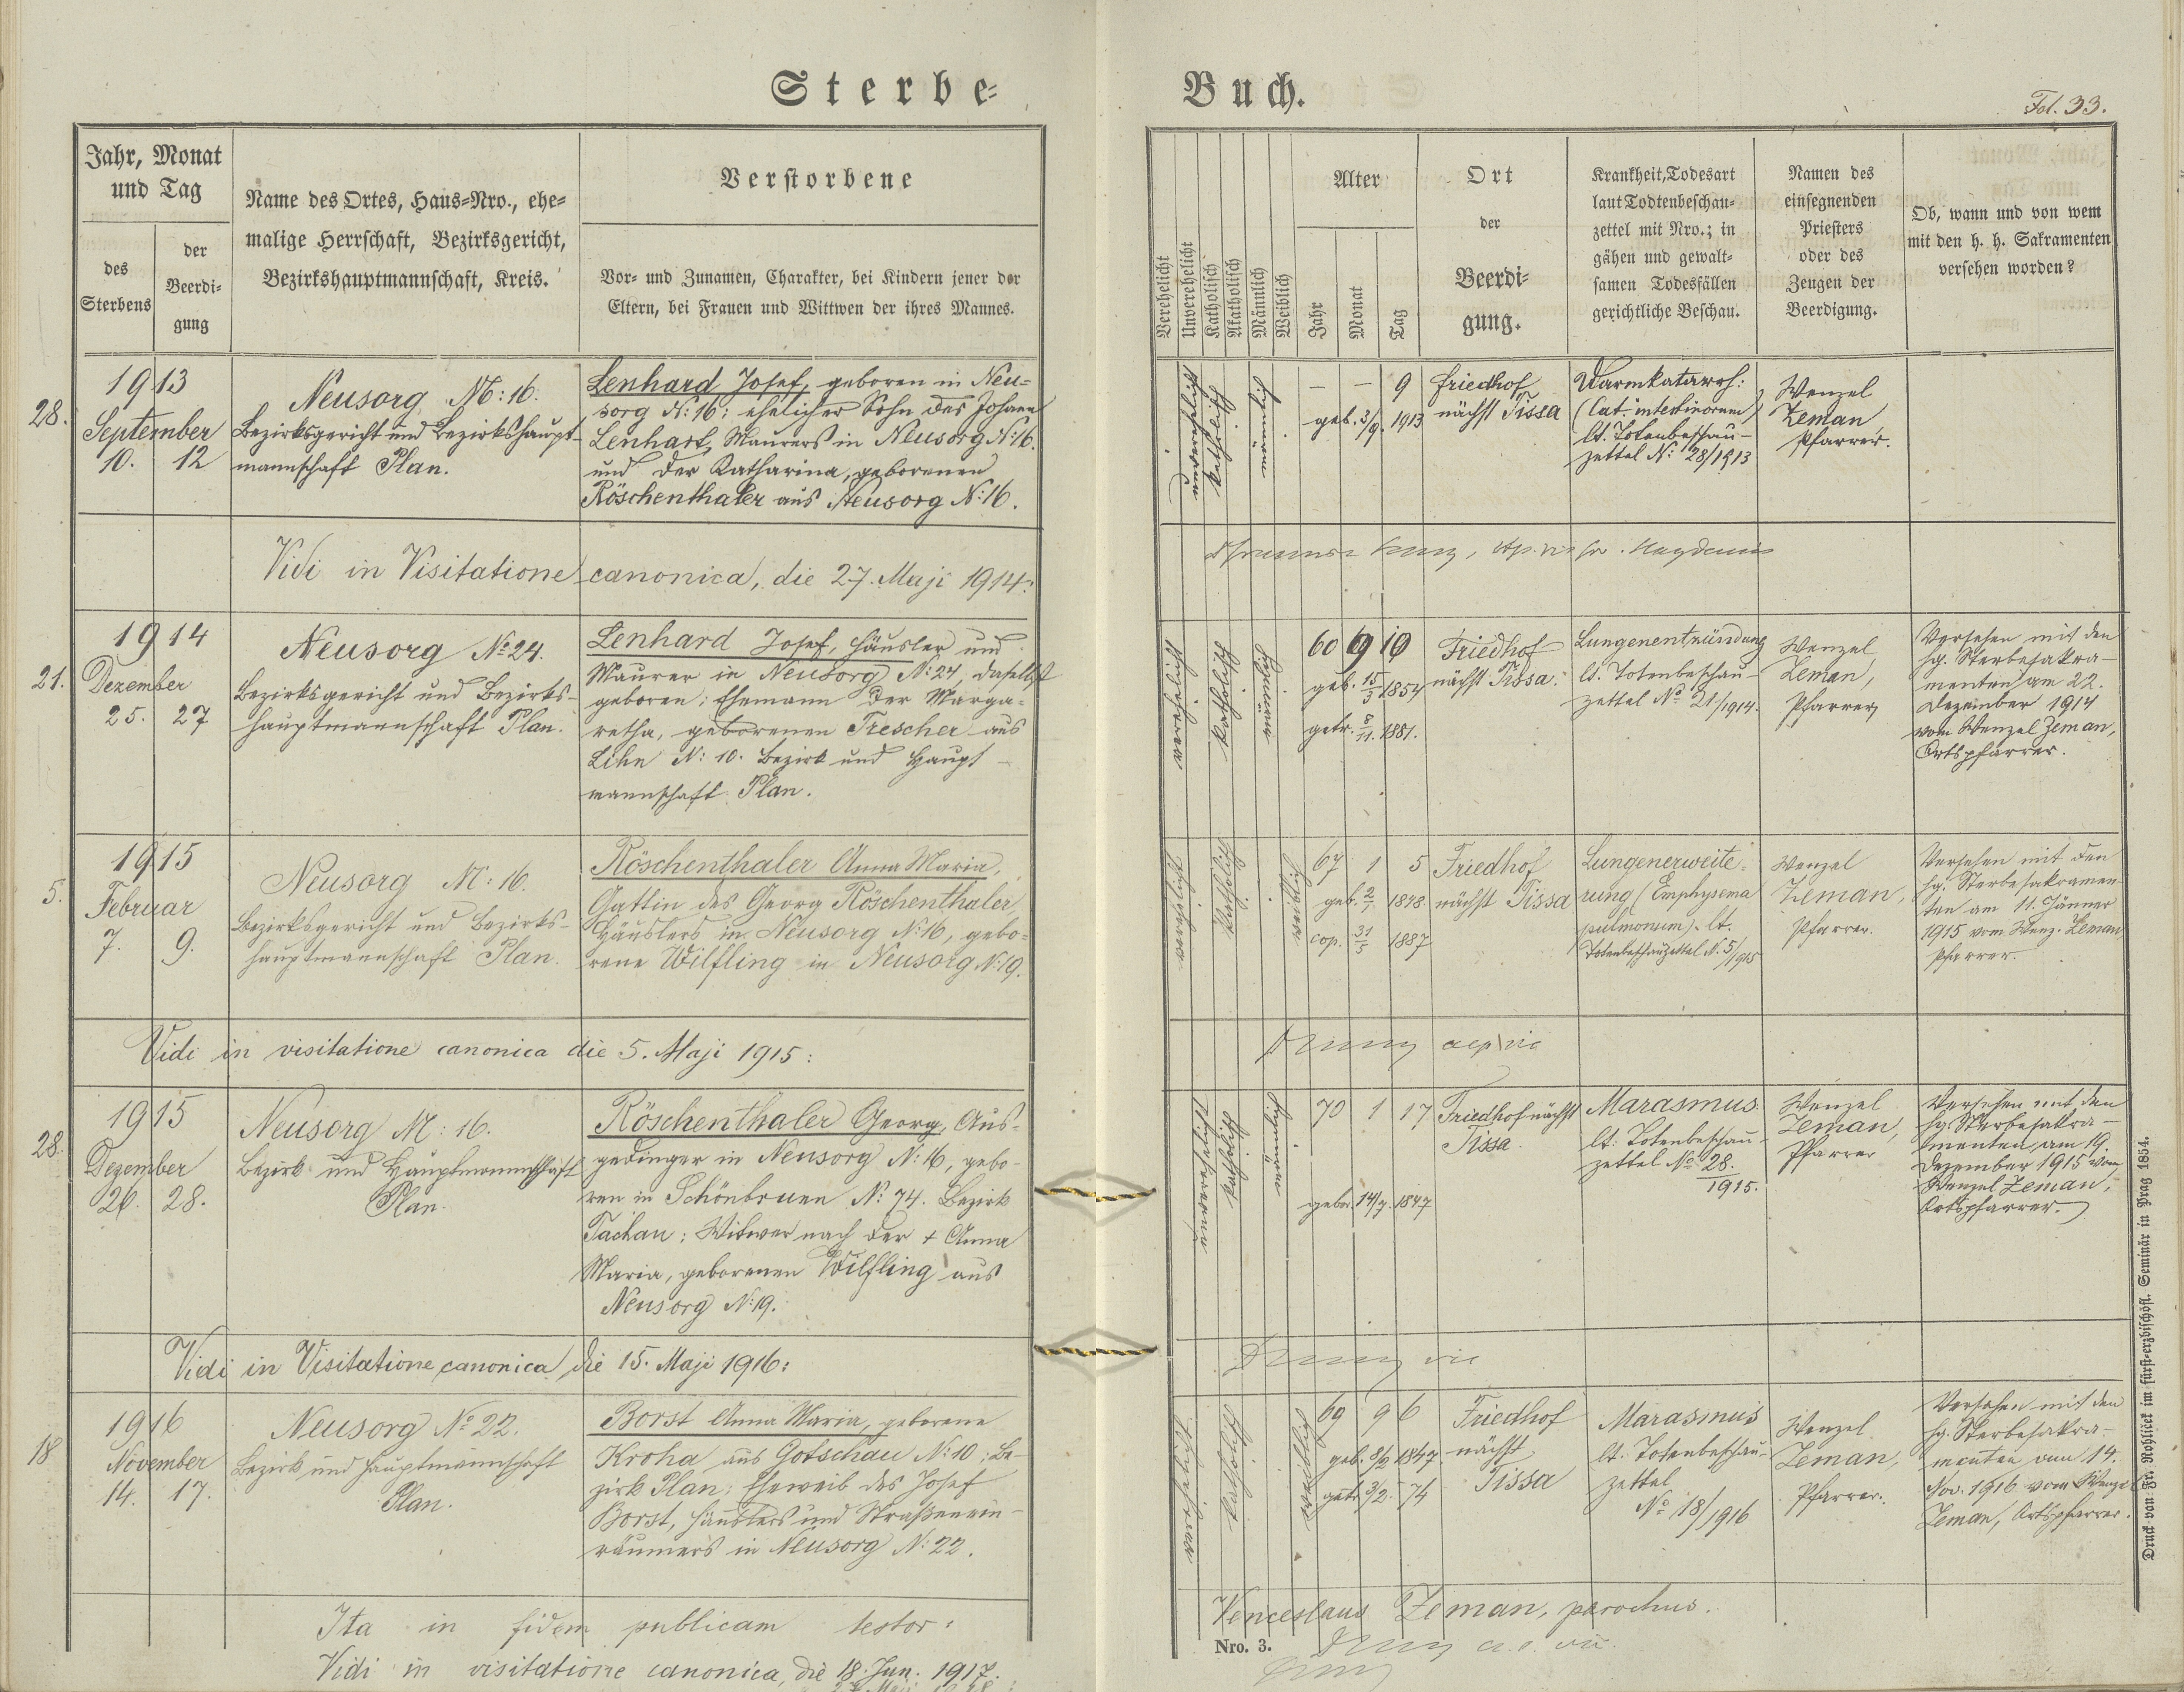 Sterbe-
Buch.
Fol. 33.
Jahr, Monat
und Tag
des
Sterbens
der
Beerdi-
gung
Name des Ortes, Haus-Nro., ehe-
malige Herrschaft, Bezirksgericht,
Bezirkshauptmannschaft, Kreis.
Verstorbene
Vor- und Zunamen, Charakter, bei Kindern jener der
Eltern, bei Frauen und Wittwen der ihres Mannes.
Verehelicht
Unverehelicht
Katholisch
Akatholisch
Männlich
Weiblich
Alter
Jahr
Monat
Tag
Ort
der
Beerdi-
gung.
Krankheit, Todesart
laut Todtenbeschau-
zettel mit Nro.; in
gähen und gewalt-
samen Todesfällen
gerichtliche Beschau.
Namen des
einsegnenden
Priesters
oder des
Zeugen der
Beerdigung.
Ob, wann und von wem
mit den h. h. Sakramenten
versehen worden?
28.
1913
September
10. 12
Neusorg N: 16.
Bezirksgericht und Bezirkshaupt-
mannschaft Plan.
Lenhard Josef, geboren in Neu-
sorg N: 16; ehelicher Sohn des Johann
Lenhart, Maurers in Neusorg N: 16.
und der Katharina, geborenen
Röschenthaler aus Neusorg N: 16.
unverehelicht
katholisch
männlich
— — 9
geb. 3/9. 1913
Friedhof
nächst Tissa
Darmkatarrh:
(Cat. intestinorum)
lt. Totenbeschau-
zettel N: 28/1913
Wenzel
Zeman
Pfarrer.
Vidi in Visitatione canonica, die 27. Maji 1914:
21.
1914
Dezember
25. 27
Neusorg No 24.
Bezirksgericht und Bezirks-
hauptmannschaft Plan.
Lenhard Josef, Häusler und
Maurer in Neusorg N: 24, daselbst
geboren; Ehemann der Marga-
retha, geborenen Trescher aus
Lihn N: 10. Bezirk und Haupt-
mannschaft Plan.
verehelicht
katholisch
männlich
60 9 10
geb. 15/3 1854
getr. 8/11. 1881.
Friedhof
nächst Tissa.
Lungenentzündung
lt. Totenbeschau-
zettel No 21/1914.
Wenzel
Zeman,
Pfarrer
Versehen mit den
hg. Sterbesakra-
menten am 22.
Dezember 1914
vom Wenzel Zeman,
Ortspfarrer.
5.
1915
Februar
7. 9.
Neusorg N: 16.
Bezirksgericht und Bezirks-
hauptmannschaft Plan.
Röschenthaler Anna Maria,
Gattin des Georg Röschenthaler
Häuslers in Neusorg N: 16, gebo-
rene Wilfling in Neusorg N: 19.
verehelicht
katholisch
weiblich
67 1 5
geb. 2/1 1848
cop. 31/5 1887
Friedhof
nächst Tissa
Lungenerweite-
rung (Emphysema
pulmonum). lt.
Totenbeschauzettel N. 5/1915
Wenzel
Zeman,
Pfarrer.
Versehen mit den
hg. Sterbesakramen-
ten am 11. Jänner
1915 vom Wenz. Zeman,
Pfarrer.
Vidi in visitatione canonica die 5. Maji 1915:
28.
1915
Dezember
26. 28.
Neusorg N: 16.
Bezirk und Hauptmannschaft
Plan.
Röschenthaler Georg, Aus-
gedinger in Neusorg N: 16, gebo-
ren in Schönbrunn N: 74. Bezirk
Tachau; Witwer nach der + Anna
Maria, geborenen Wilfling aus
Neusorg N: 19.
unverehelicht
katholisch
männlich
70 1 17
gebor. 14/7. 1847
Friedhof nächst
Tissa.
Marasmus
lt. Totenbeschau-
zettel No 28.
1915.
Wenzel
Zeman,
Pfarrer
Versehen mit den
hg. Sterbesakra-
menten am 19.
Dezember 1915 vom
Wenzel Zeman,
Ortspfarrer.
Vidi in Visitatione canonica die 15. Maji 1916:
18
1916
November
14. 17.
Neusorg No 22.
Bezirk und Hauptmannschaft
Plan.
Borst Anna Maria, geborene
Kroha aus Gotschau N: 10; Be-
zirk Plan; Eheweib des Josef
Borst, Häuslers und Straßenein-
räumers in Neusorg N: 22.
verehelicht
katholisch
weiblich
69 9 6
geb. 8/2 1847
getr. 9/2. 74
Friedhof
nächst
Tissa
Marasmus
lt. Totenbeschau-
zettel
No 18/1916
Wenzel
Zeman,
Pfarrer.
Versehen mit den
hg. Sterbesakra-
menten am 14.
Nov. 1916 vom Wenzel
Zeman, Ortspfarrer.
Ita in fidem publicam testor:
Venceslaus Zeman, parochus.
Vidi in visitatione canonica, die 18. Jun. 1917.
Nro. 3.
Druck von Fr. Rohliček im fürst-erzbischöfl. Seminär in Prag 1854.